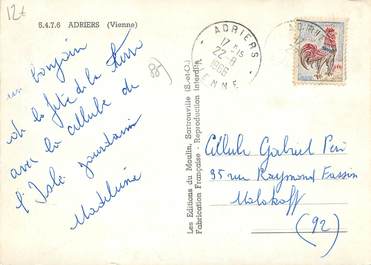 12€
5.4.7.6 ADRIERS (Vienne)
un bonjour
de la fête de la Terre
avec la cellule de
l'Isle Jourdain
Madeleine
Les Editions du Moulin, Sartrouville (S.-et-O.)
Fabrication Française - Reproduction interdite
ADRIERS
17 H 15
22-8
1966
VIENNE
Cellule Gabriel Péri
35 rue Raymond Fassin
Malakoff
(92)